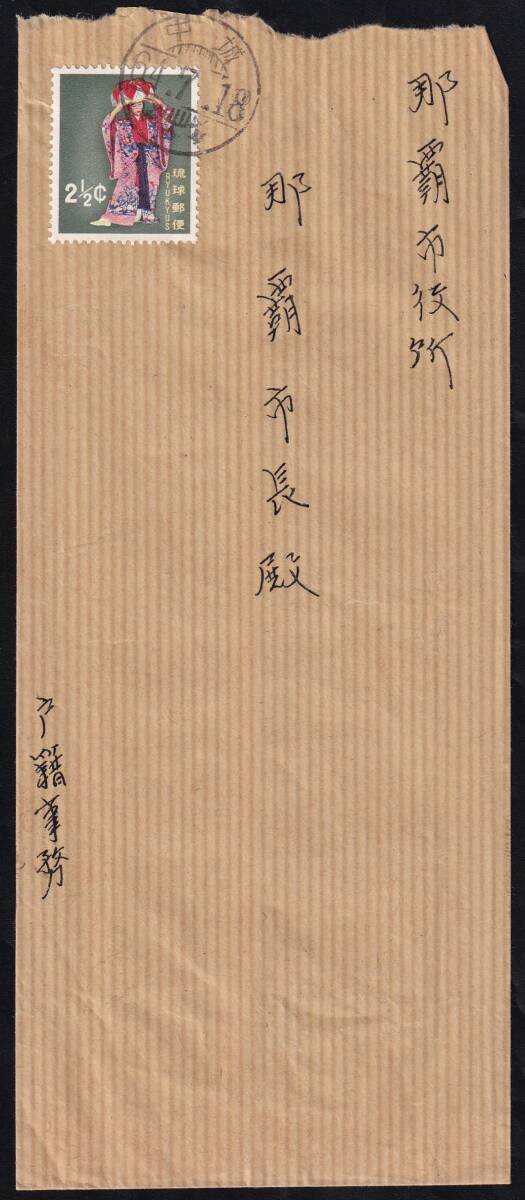 那覇市役所
那覇市長殿
戸籍事務
中城
64.7.18
2½¢
琉球郵便
RYUKYUS